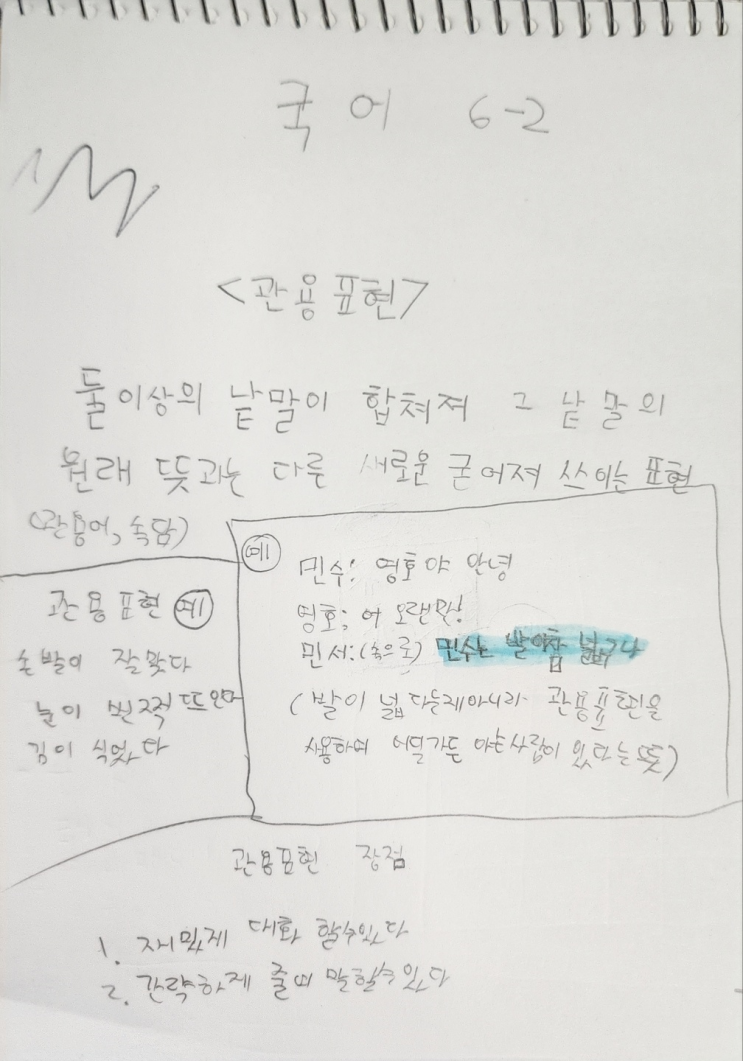 국어 6-2
<관용표현>
둘이상의 낱말이 합쳐져 그 낱말의
원래 뜻과는 다루 새로운 굳어져 쓰이는 표현
(관용어, 속담)
관용표현 예
손발이 잘맞다
눈이 번쩍 뜨인다
김이 식었다
예
민수: 영호야 안녕
영호; 어 오랜만!
민서:(속으로) 민수는 발이참 넓구나
(발이 넓다는게아니라 관용표현을
사용하여 어딜가든 아는사람이 있다는뜻)
관용표현 장점
1. 재밌게 대화 할수있다
2. 간략하게 줄여 말할수있다